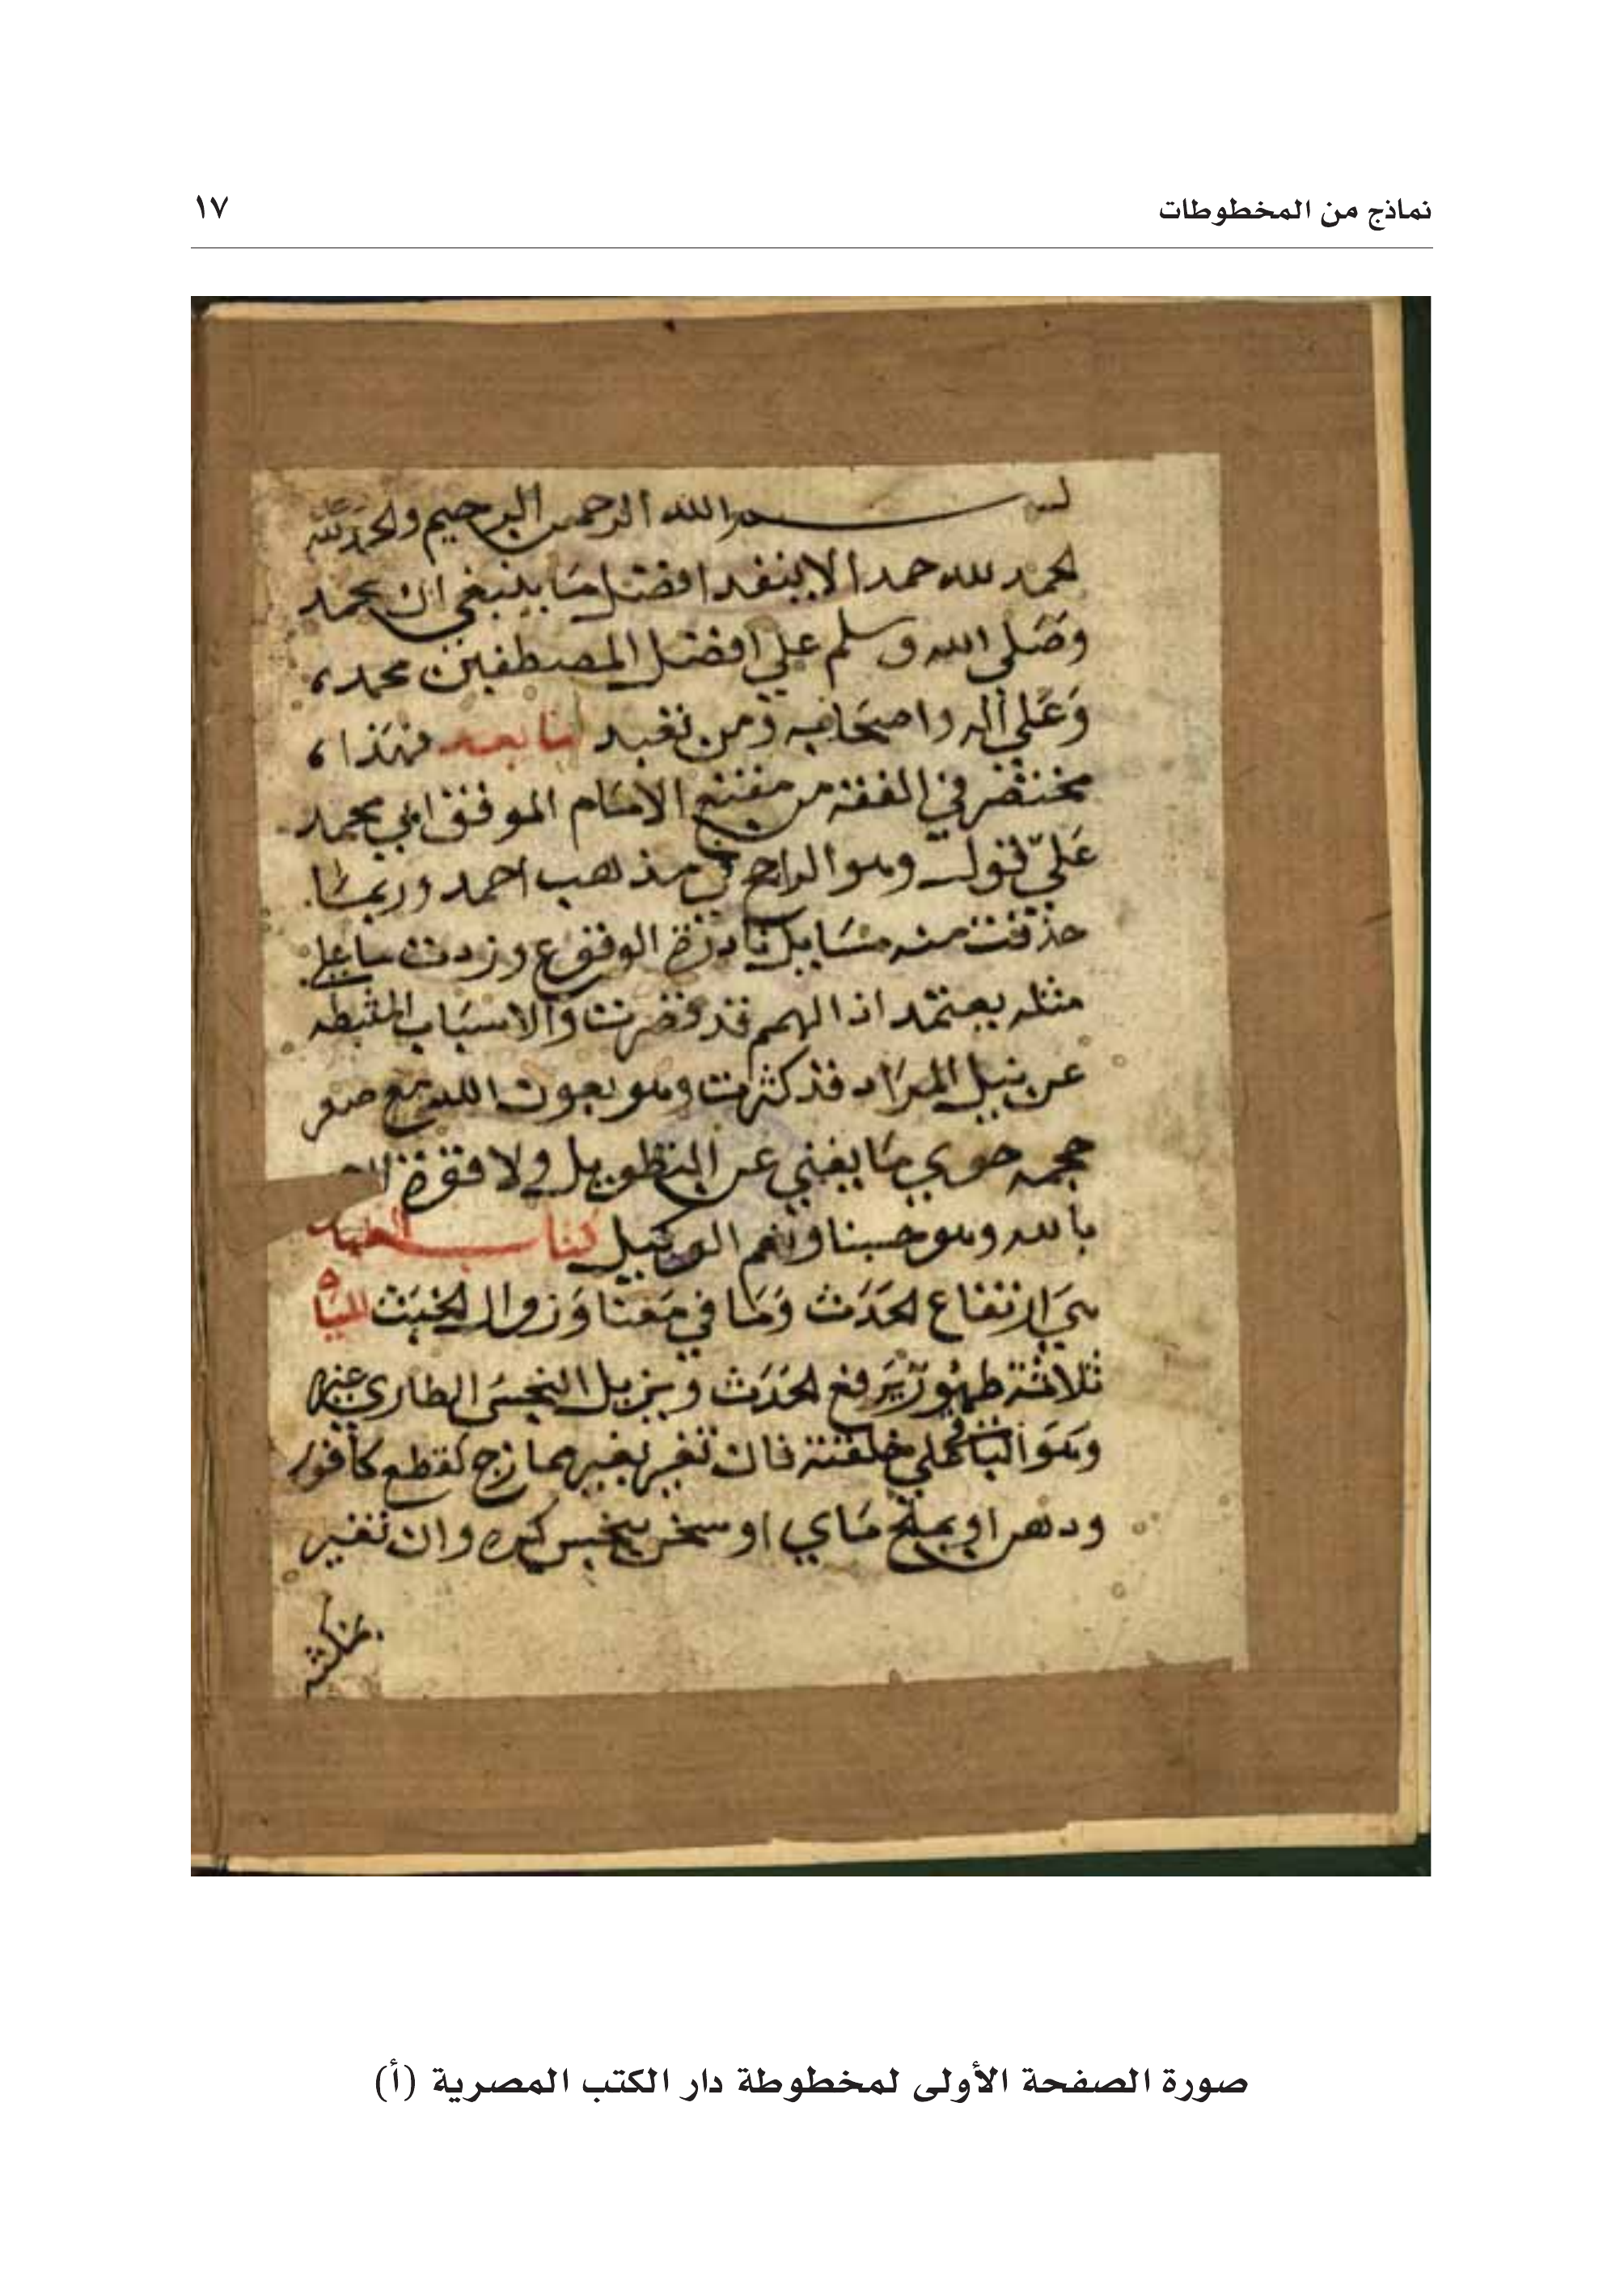 نماذج من المخطوطات
١٧
بسم الله الرحمن الرحيم والحمد لله
الحمد لله حمدا لا ينفد افضل ما ينبغي ان يحمد
وصلى الله وسلم علي افضل المصطفين محمد،
وعلي اله واصحابه ومن تعبد اما بعد فهذا،
مختصر في الفقه من مقنع الامام الموفق ابي محمد
علي قول وهو الراجح في مذهب احمد وربما
حذفت منه مسايل نادرة الوقوع وزدت ما علي
مثله يعتمد اذ الهمم قد قصرت والاسباب المثبطه
عن نيل المراد قد كثرت وهو بعون الله مع صغر
حجمه حوي ما يغني عن التطويل ولا قوة الا
بالله وهو حسبنا ونعم الوكيل كتاب الطهارة
هي ارتفاع الحدث وما في معناه وزوال الخبث المياه
ثلاثة طهور يرفع الحدث ويزيل النجس الطاري غيره
وهو الباقي علي خلقته فان تغير بغير ممازج كقطع كافور
ودهن او بملح ماي او سخن بنجس كره وان تغير
بمكثه
صورة الصفحة الأولى لمخطوطة دار الكتب المصرية (أ)